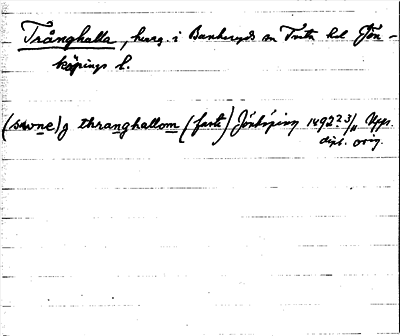 Trånghalla, herrg. i Bankeryds sn Tveta hd Jön-
köpings l.
(swne) j thranghallom (faste) Jönköping 1492 23/11 Upps.
dipl. orig.